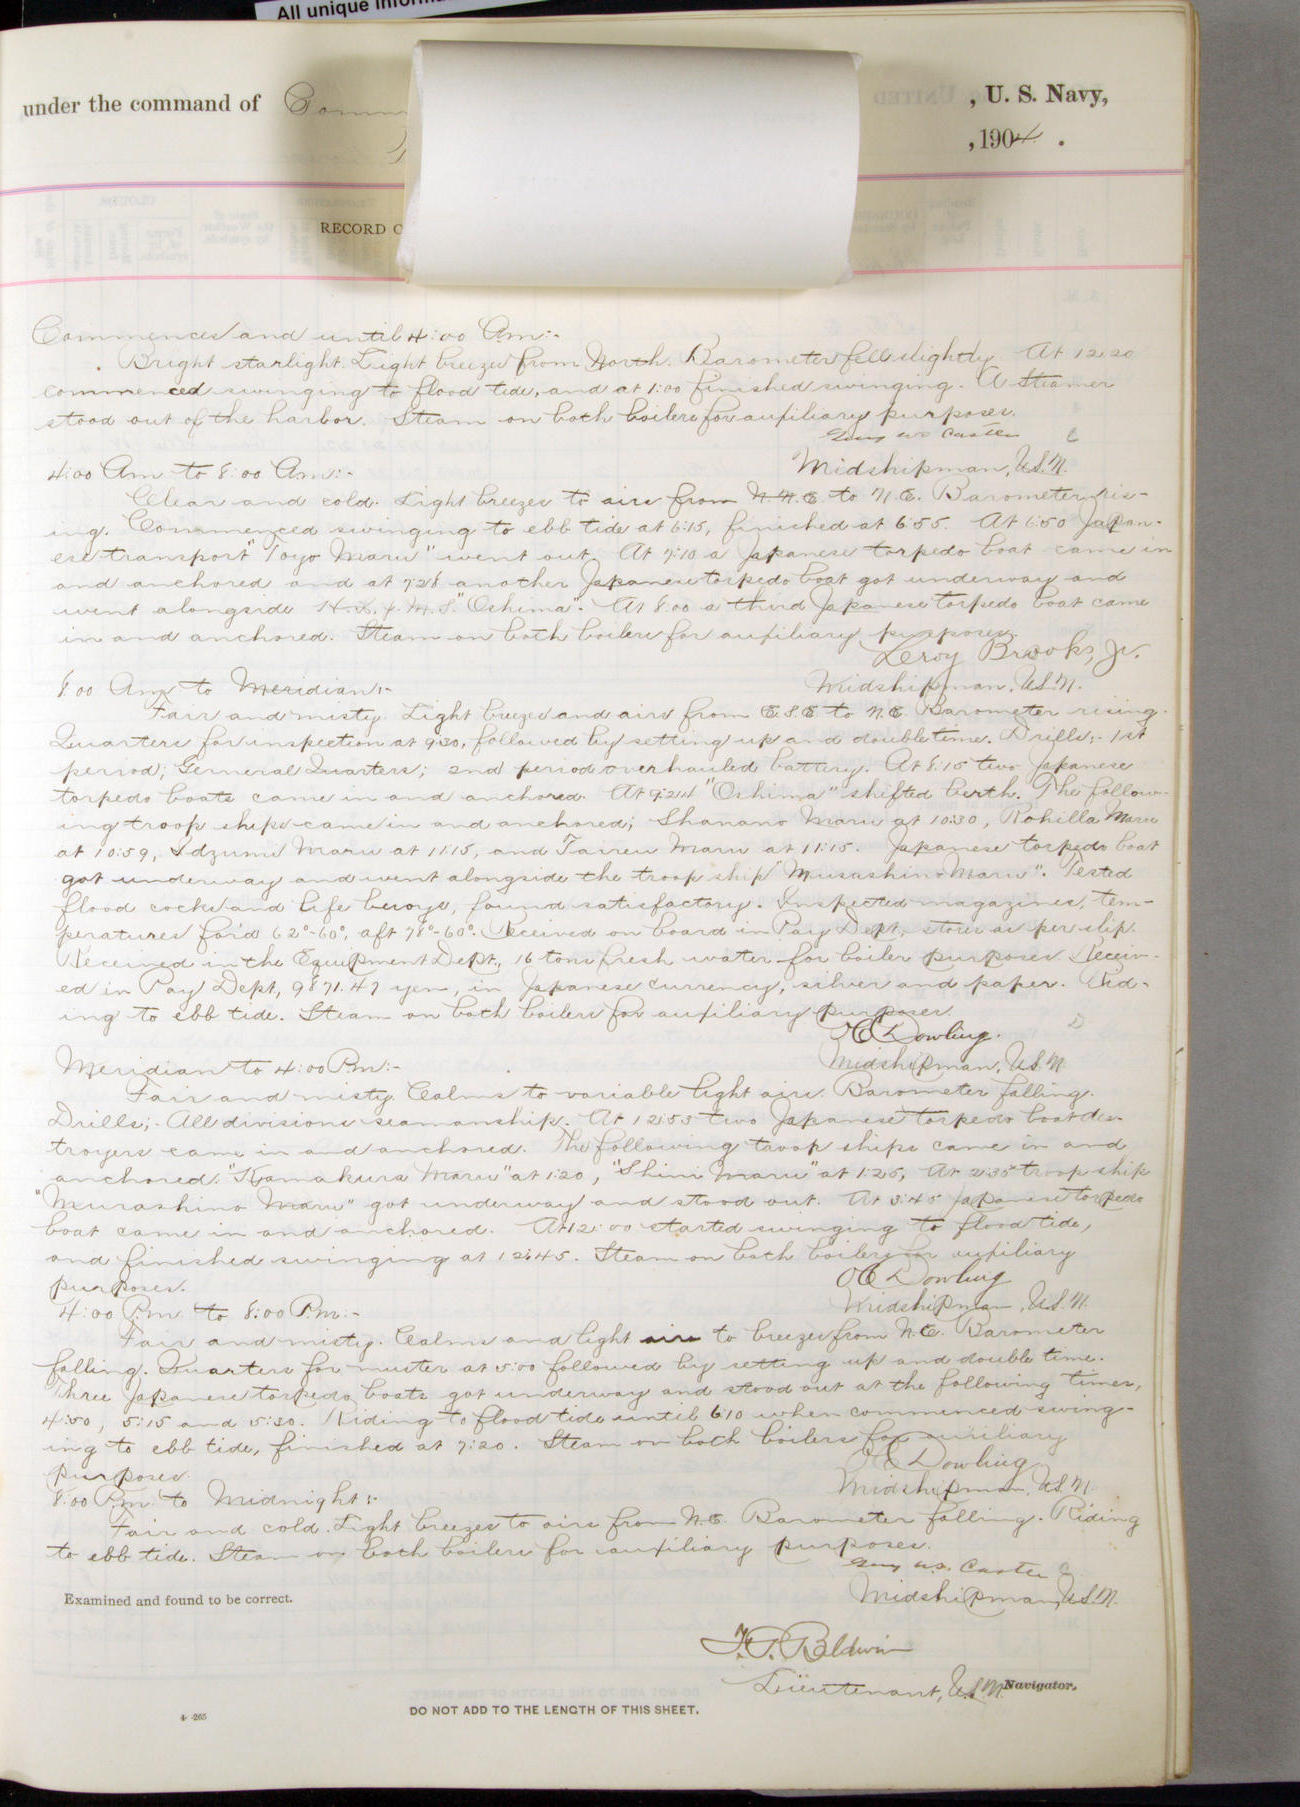 All unique
under the command of Comm
, U. S. Navy,
, 1904.
RECORD
Commences and until 4:00 Am:-
Bright starlight. Light breezes from North. Barometer fell slightly. At 12:20
commenced swinging to flood tide, and at 1:00 finished swinging. A Steamer
stood out of the harbor. Steam on both boilers for auxiliary purposes.
Carter
Midshipman, U.S.N.
4:00 Am to 8:00 Am:-
Clear and cold. Light breezes to airs from N.N.E. to N.E. Barometer ris-
ing. Commenced swinging to ebb tide at 6:15, finished at 6:55. At 6:50 Japan-
ese transport "Toyo Maru" went out. At 7:10 a Japanese torpedo boat came in
and anchored and at 7:28 another Japanese torpedo boat got underway and
went alongside H.I.J.M.S. "Oshima". At 8:00 a third Japanese torpedo boat came
in and anchored. Steam on both boilers for auxiliary purposes.
Leroy Brooks, Jr.
Midshipman, U.S.N.
8:00 Am to Meridian:-
Fair and misty. Light breezes and airs from E.S.E to N.E. Barometer rising.
Quarters for inspection at 9:30, followed by setting up and double time. Drills:- 1st
period; General Quarters; 2nd period overhauled battery. At 8:15 two Japanese
torpedo boats came in and anchored. At 9:24 "Oshima" shifted berth. The follow-
ing troop ships came in and anchored; Shanano Maru at 10:30, Rohilla Maru
at 10:59, Idzumi Maru at 11:15, and Tairen Maru at 11:15. Japanese torpedo boat
got underway and went alongside the troop ship "Musashino Maru". Tested
flood cocks and life buoys, found satisfactory. Inspected magazines, tem-
peratures for'd 62°-60°, aft 78°-60°. Received on board in Pay Dept, stores as per slip.
Received in the Equipment Dept., 16 tons fresh water for boiler purposes. Receiv-
ed in Pay Dept, 9871.47 yen, in Japanese currency, silver and paper. Rid-
ing to ebb tide. Steam on both boilers for auxiliary purposes.
Dowling.
Midshipman, U.S.N.
Meridian to 4:00 Pm:-
Fair and misty. Calms to variable light airs. Barometer falling.
Drills;- All divisions seamanship. At 12:53 two Japanese torpedo boat des-
troyers came in and anchored. The following troop ships came in and
anchored. "Kamakura Maru" at 1:20, "Shini Maru" at 1:25, At 2:35 troop ship
"Murashino Maru" got underway and stood out. At 3:45 Japanese torpedo
boat came in and anchored. At 12:00 started swinging to flood tide,
and finished swinging at 12:45. Steam on both boilers for auxiliary
purposes.
Dowling
Midshipman, U.S.N.
4:00 P.m. to 8:00 P.m.:-
Fair and misty. Calms and light airs to breezes from N.E. Barometer
falling. Quarters for muster at 5:00 followed by setting up and double time.
Three Japanese torpedo boats got underway and stood out at the following times,
4:50, 5:15 and 5:30. Riding to flood tide until 6:10 when commenced swing-
ing to ebb tide, finished at 7:20. Steam on both boilers for auxiliary
purposes.
Dowling
Midshipman, U.S.N.
8:00 P.m. to Midnight:-
Fair and cold. Light breezes to airs from N.E. Barometer falling. Riding
to ebb tide. Steam on both boilers for auxiliary purposes.
Carter
Midshipman, U.S.N.
Examined and found to be correct.
Baldwin
Lieutenant, U.S.N. Navigator.
DO NOT ADD TO THE LENGTH OF THIS SHEET.